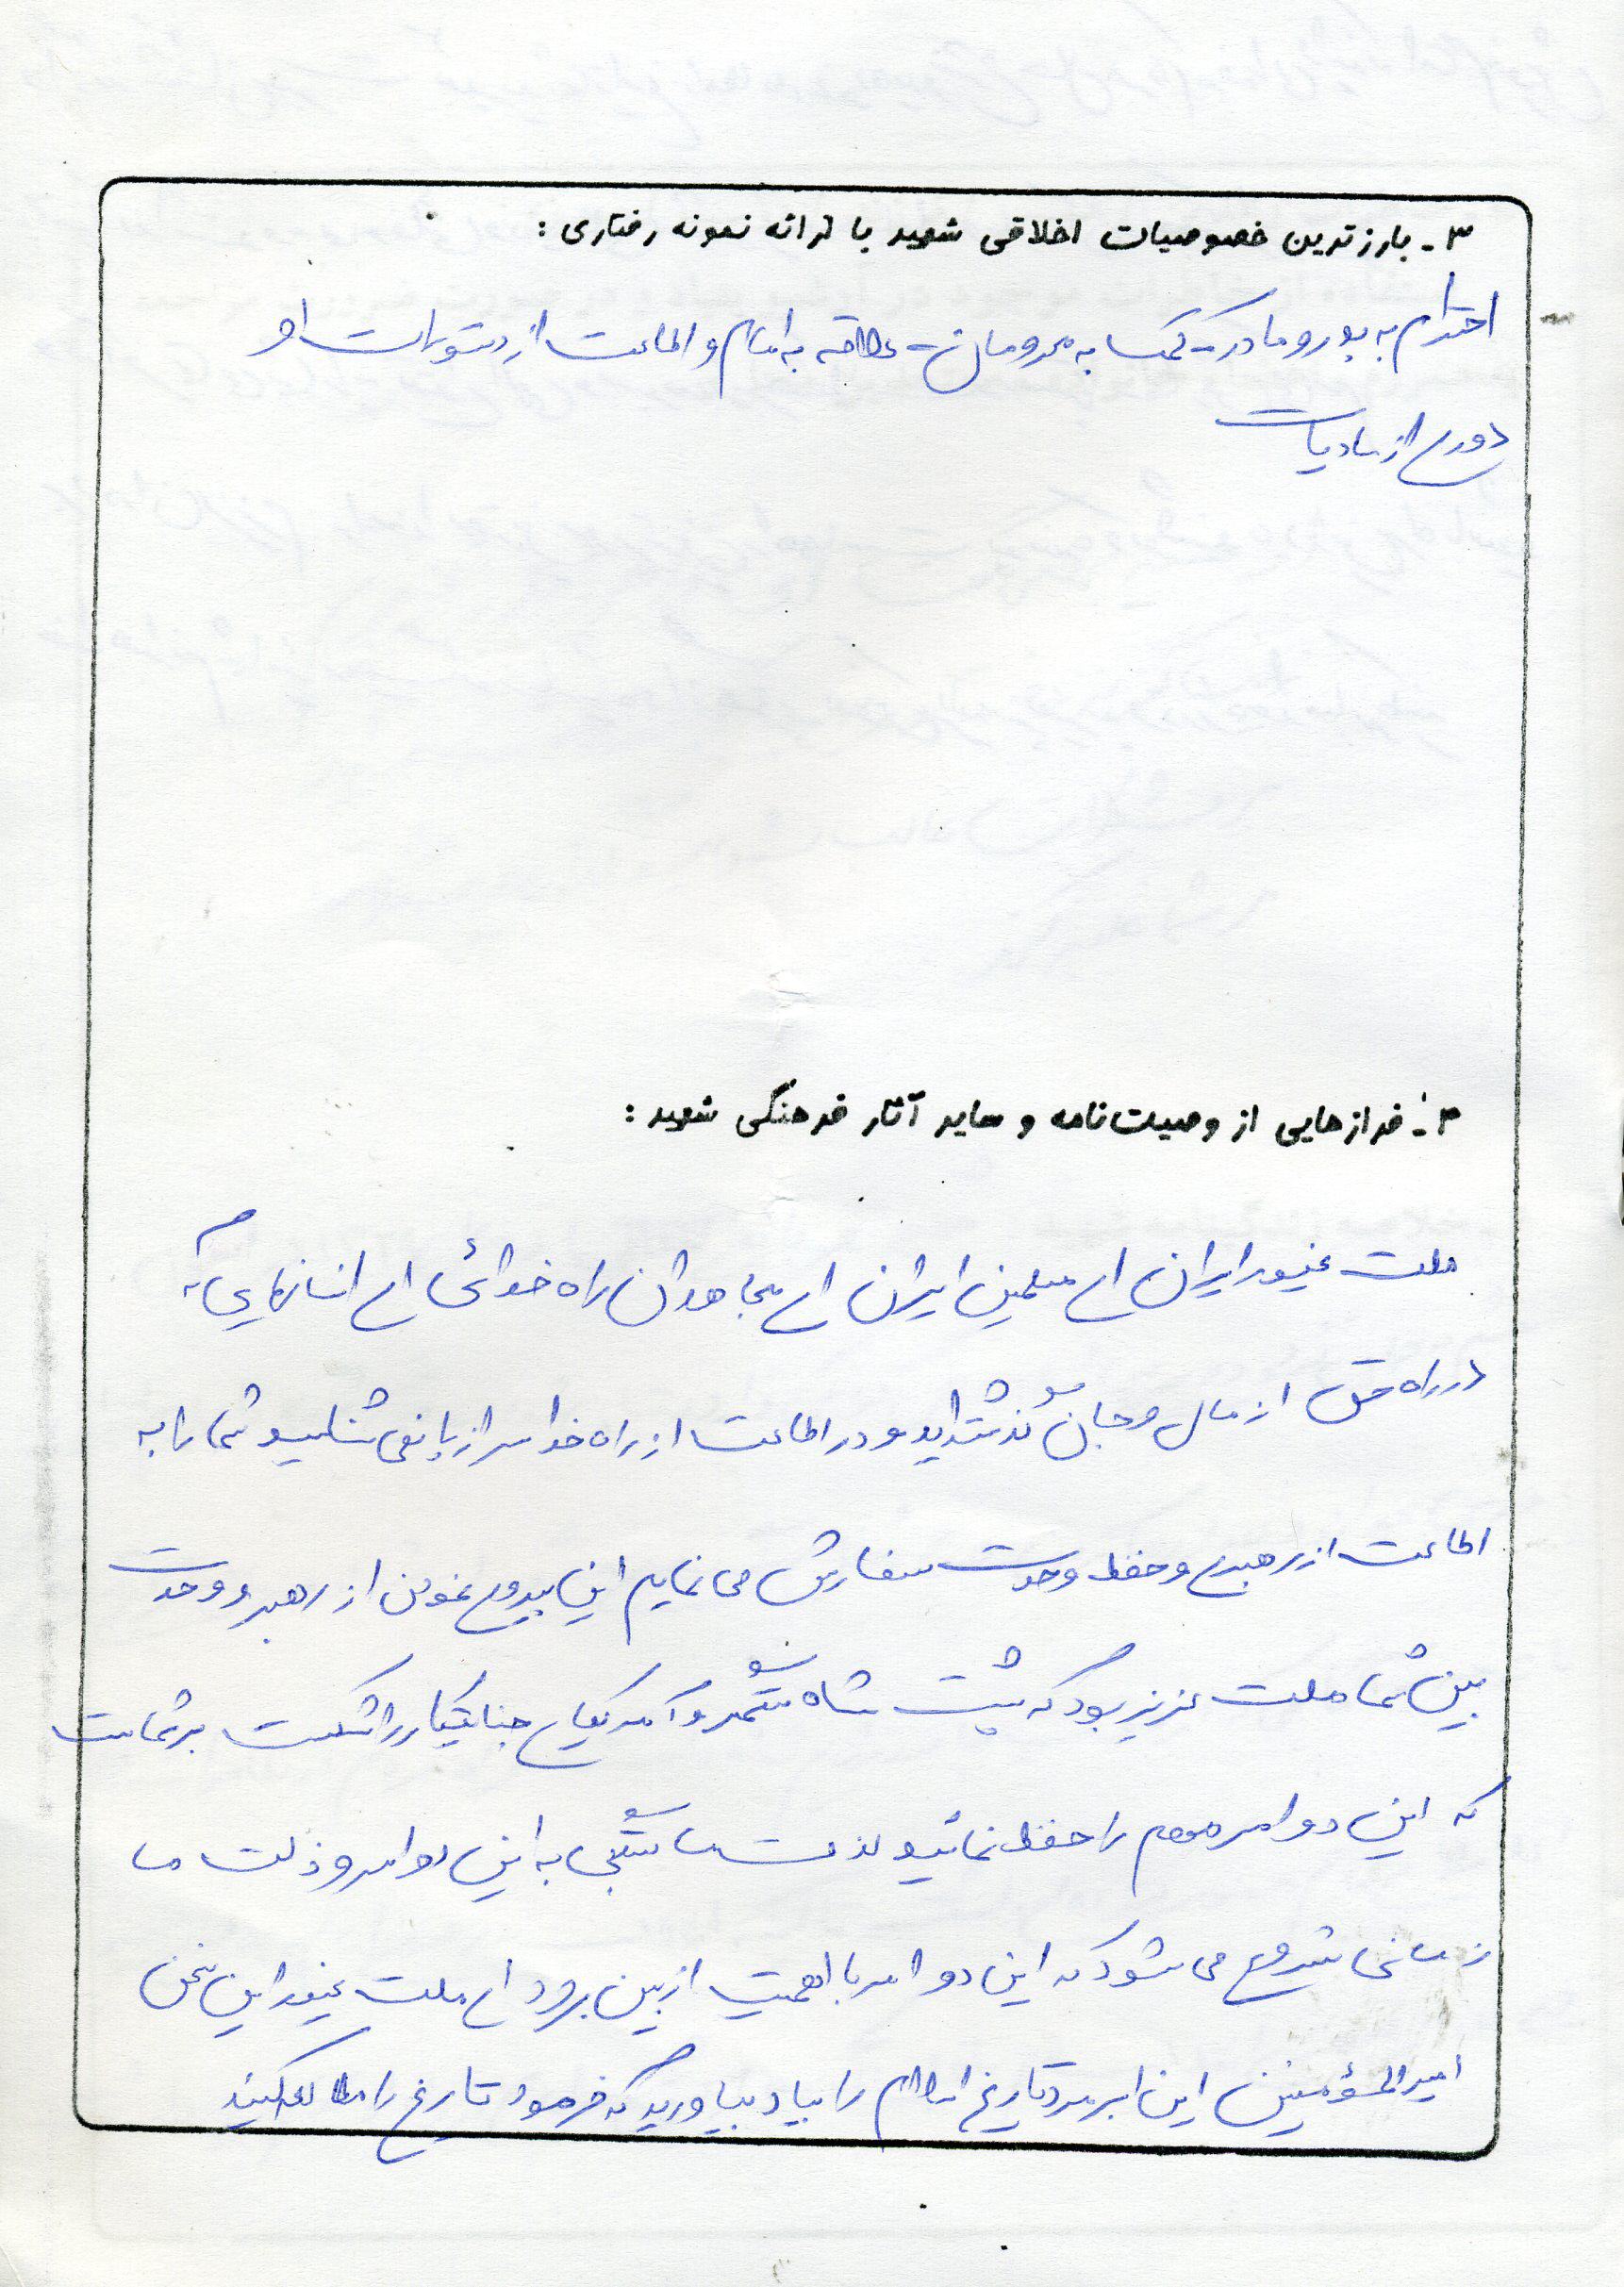 ۳ـ بارزترین خصوصیات اخلاقی شهید با ارائه نمونه رفتاری :
احترام به پدر و مادر ـ کمک به محرومان ـ علاقه به امام و اطاعت از دستورات او
دوری از مادیات
۴ـ فرازهایی از وصیت‌نامه و سایر آثار فرهنگی شهید :
ملت غیور ایران ای مسلمین ایران ای مجاهدان راه خدائی ای انسانهایی که
در راه حق از مال و جان گذشته‌اید و در اطاعت از راه خدا سر از پا نمی شناسید شما را به
اطاعت از رهبری و حفظ وحدت سفارش می نمایم این پیروی نمودن از رهبر و وحدت
بین شما ملت عزیز بود که پشت شاه ستمگر و آمریکای جنایتکار را شکست بر شماست
که این دو امر مهم را حفظ نمائید به این دو امر و ذلت ما
زمانی شروع می شود که این دو امر با اهمیت از بین برود ای ملت غیور این سخن
امیرالمؤمنین این ابرمرد تاریخ اسلام را بیاد بیاورید که فرمود تاریخ را مطالعه کنید